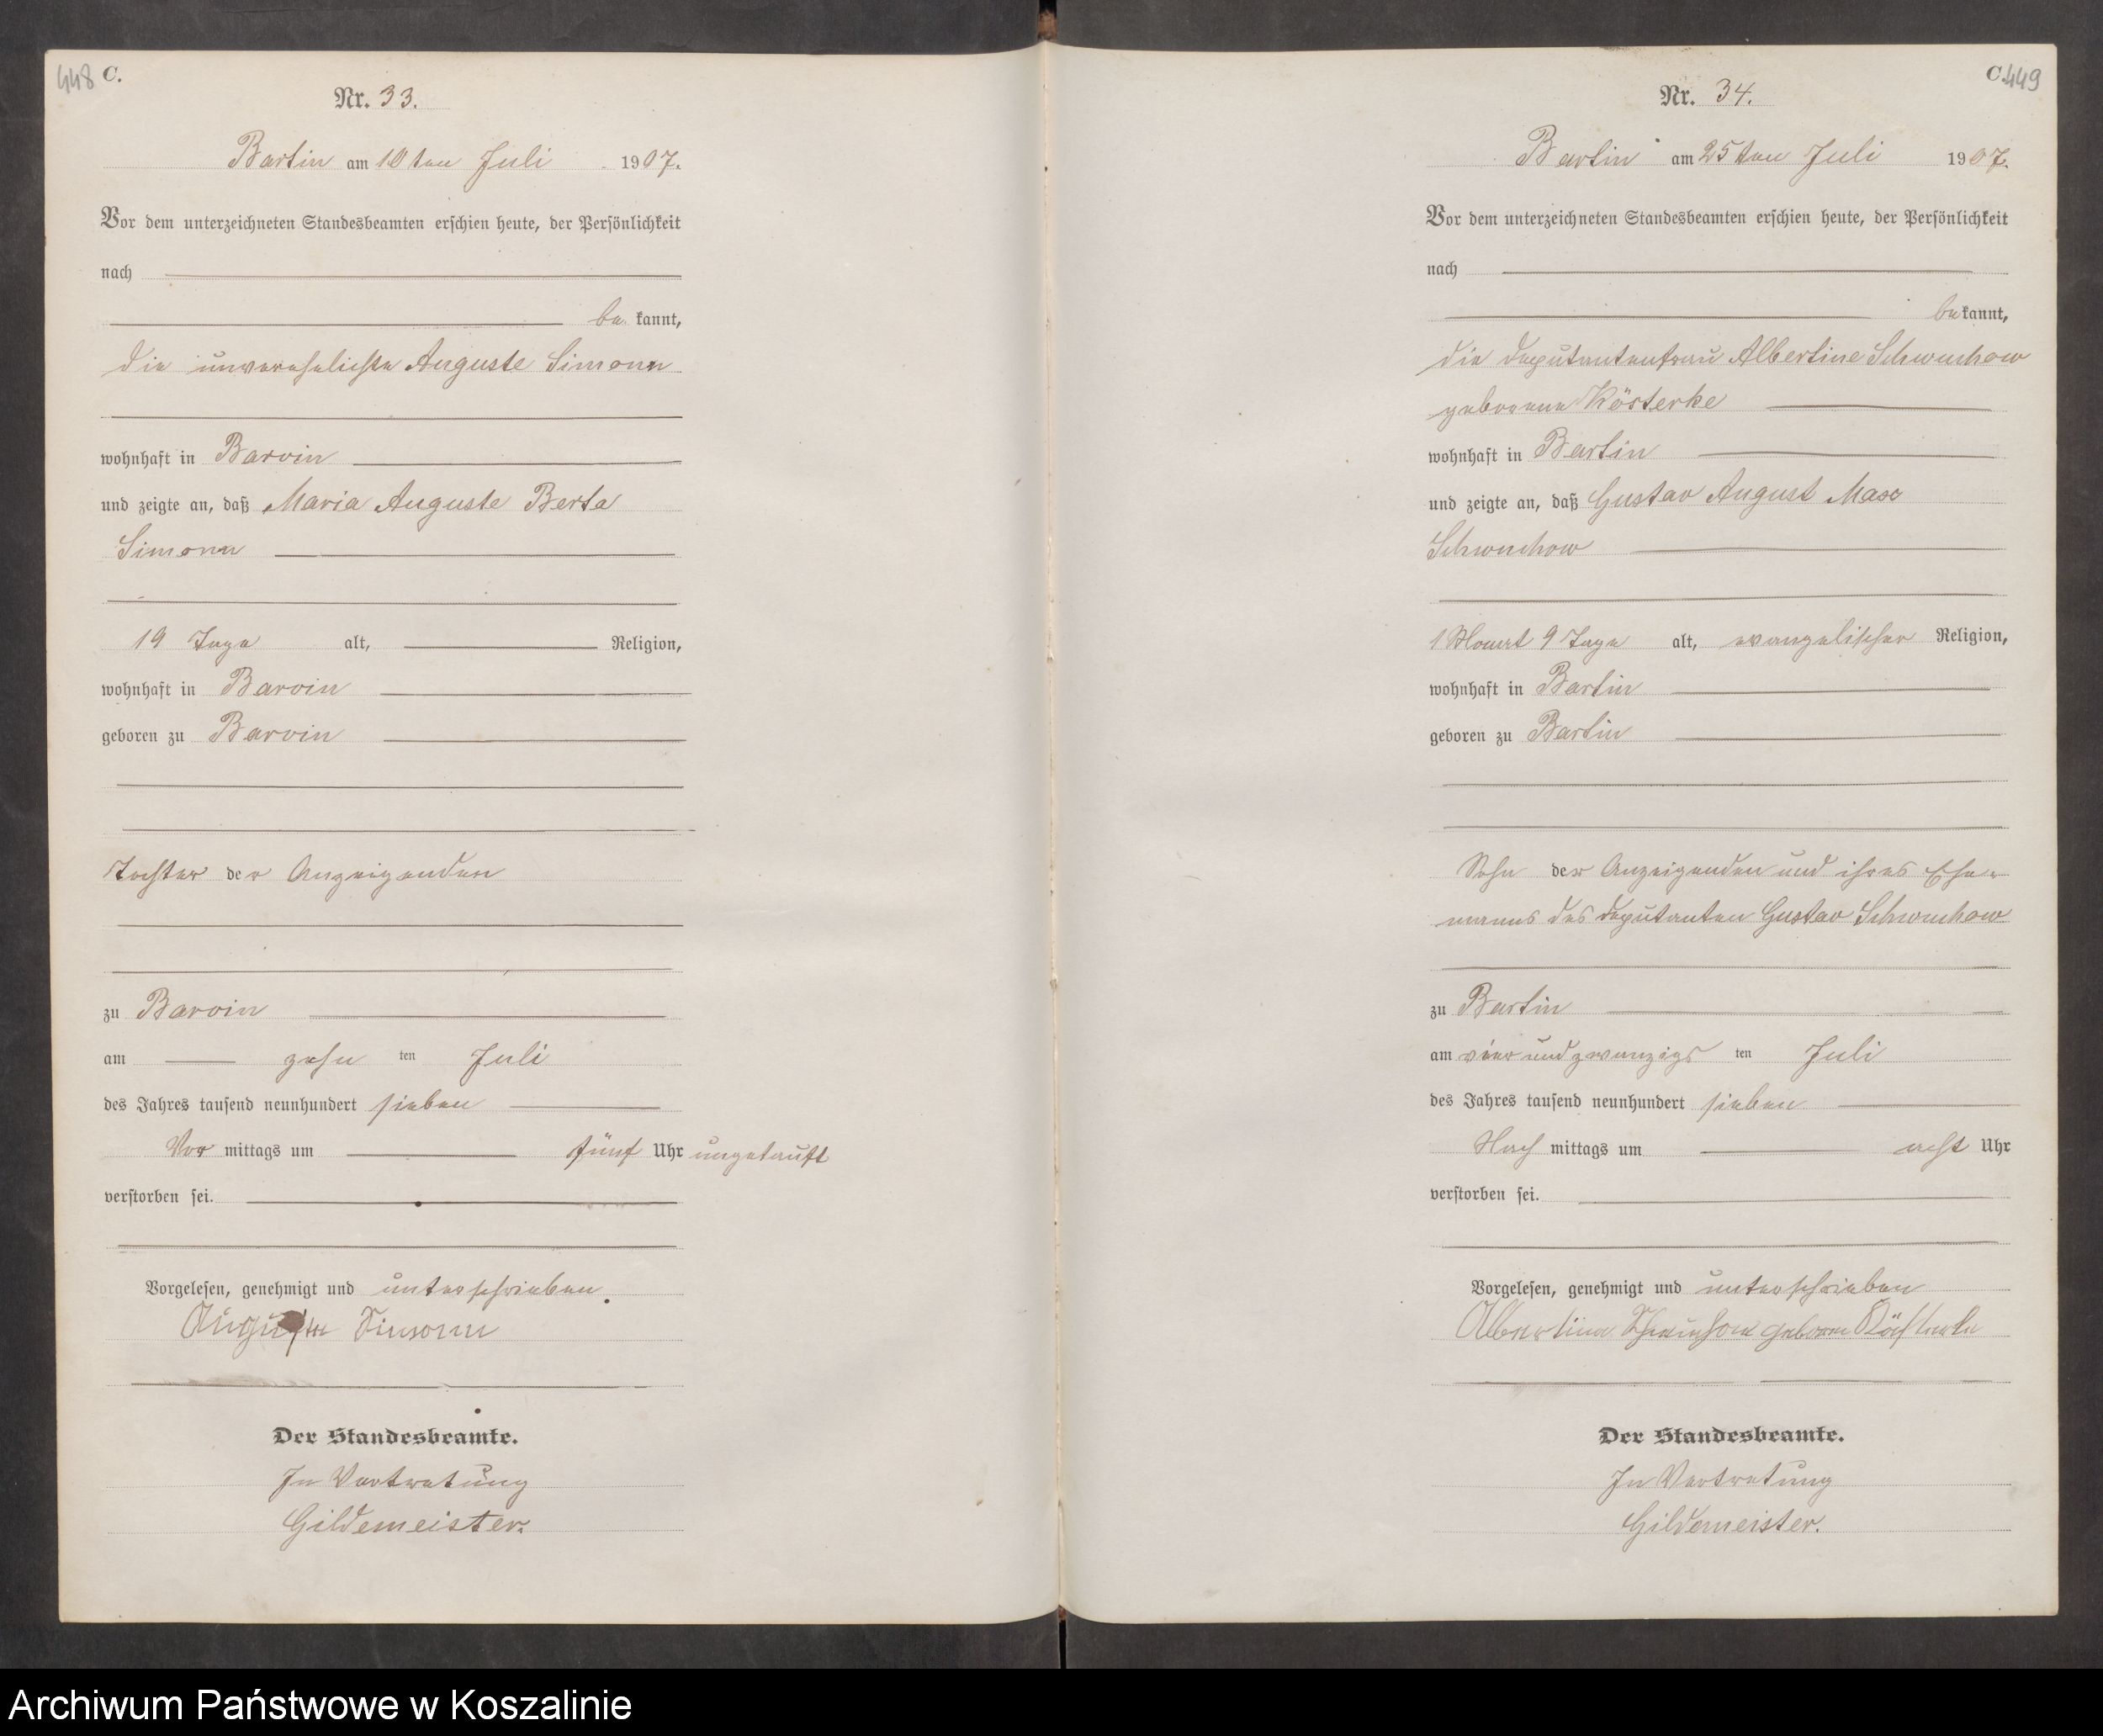 448 C.
Nr. 33.
Bartin am 10 ten Juli 1907.
Vor dem unterzeichneten Standesbeamten erschien heute, der Persönlichkeit
nach
be kannt,
die unverehelichte Auguste Simonn
wohnhaft in Barvin
und zeigte an, daß Maria Auguste Berta
Simonn
19 Tage alt, Religion,
wohnhaft in Barvin
geboren zu Barvin
Tochter der Anzeigenden
zu Barvin
am zehn ten Juli
des Jahres tausend neunhundert sieben
Vor mittags um fünf Uhr ungetauft
verstorben sei.
Vorgelesen, genehmigt und unterschrieben.
Auguste Simonn
Der Standesbeamte.
In Vertretung
Gildemeister.
C. 449
Nr. 34.
Bartin am 25 ten Juli 1907.
Vor dem unterzeichneten Standesbeamten erschien heute, der Persönlichkeit
nach
be kannt,
die Deputantenfrau Albertine Schwuchow
geborene Kösterke
wohnhaft in Bartin
und zeigte an, daß Gustav August Max
Schwuchow
1 Monat 9 Tage alt, evangelischer Religion,
wohnhaft in Bartin
geboren zu Bartin
Sohn der Anzeigenden und ihres Ehe-
manns des Deputanten Gustav Schwuchow
zu Bartin
am vier und zwanzigs ten Juli
des Jahres tausend neunhundert sieben
Nach mittags um acht Uhr
verstorben sei.
Vorgelesen, genehmigt und unterschrieben
Albertine Schwuchow geborene Kösterke
Der Standesbeamte.
In Vertretung
Gildemeister.
Archiwum Państwowe w Koszalinie